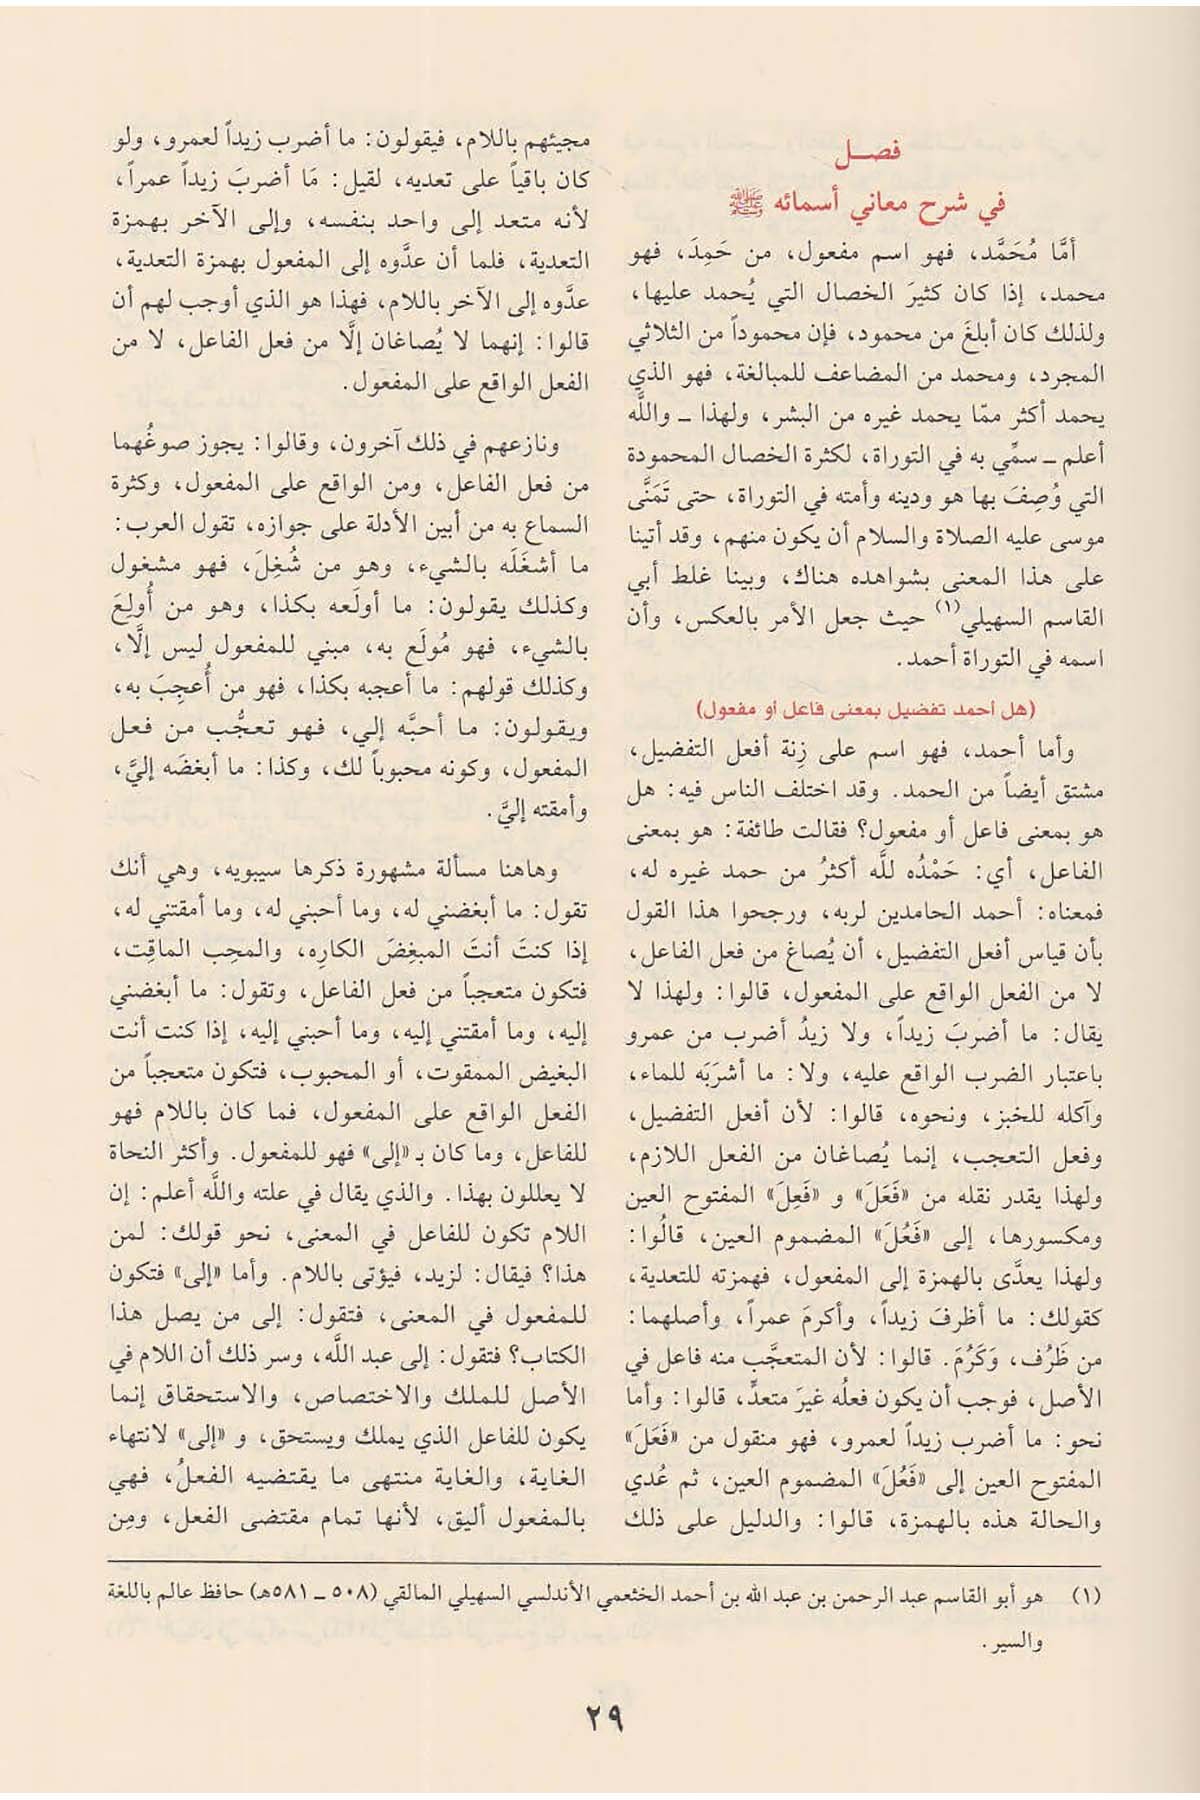 فصــل
في شرح معاني أسمائه ﷺ
أمَّا مُحَمَّد، فهو اسم مفعول، من حَمِدَ، فهو
محمد، إذا كان كثيرَ الخصال التي يُحمد عليها،
ولذلك كان أبلغَ من محمود، فإن محموداً من الثلاثي
المجرد، ومحمد من المضاعف للمبالغة، فهو الذي
يحمد أكثر ممّا يحمد غيره من البشر، ولهذا ـ واللَّه
أعلم ـ سمِّي به في التوراة، لكثرة الخصال المحمودة
التي وُصِفَ بها هو ودينه وأمته في التوراة، حتى تَمَنَّى
موسى عليه الصلاة والسلام أن يكون منهم، وقد أتينا
على هذا المعنى بشواهده هناك، وبينا غلط أبي
القاسم السهيلي(١) حيث جعل الأمر بالعكس، وأن
اسمه في التوراة أحمد.
(هل أحمد تفضيل بمعنى فاعل أو مفعول)
وأما أحمد، فهو اسم على زِنة أفعل التفضيل،
مشتق أيضاً من الحمد. وقد اختلف الناس فيه: هل
هو بمعنى فاعل أو مفعول؟ فقالت طائفة: هو بمعنى
الفاعل، أي: حَمْدُه للَّه أكثرُ من حمد غيره له،
فمعناه: أحمد الحامدين لربه، ورجحوا هذا القول
بأن قياس أفعل التفضيل، أن يُصاغ من فعل الفاعل،
لا من الفعل الواقع على المفعول، قالوا: ولهذا لا
يقال: ما أضربَ زيداً، ولا زيدُ أضرب من عمرو
باعتبار الضرب الواقع عليه، ولا: ما أشرَبَه للماء،
وآكله للخبز، ونحوه، قالوا: لأن أفعل التفضيل،
وفعل التعجب، إنما يُصاغان من الفعل اللازم،
ولهذا يقدر نقله من «فَعَلَ» و «فَعِلَ» المفتوح العين
ومكسورها، إلى «فَعُلَ» المضموم العين، قالُوا:
ولهذا يعدَّى بالهمزة إلى المفعول، فهمزته للتعدية،
كقولك: ما أظرفَ زيداً، وأكرمَ عمراً، وأصلهما:
من ظَرُف، وَكَرُمَ. قالوا: لأن المتعجَّب منه فاعل في
الأصل، فوجب أن يكون فعلُه غيرَ متعدٍّ، قالوا: وأما
نحو: ما أضرب زيداً لعمرو، فهو منقول من «فَعَلَ»
المفتوح العين إلى «فَعُلَ» المضموم العين، ثم عُدي
والحالة هذه بالهمزة، قالوا: والدليل على ذلك
مجيئهم باللام، فيقولون: ما أضرب زيداً لعمرو، ولو
كان باقياً على تعديه، لقيل: مَا أضربَ زيداً عمراً،
لأنه متعد إلى واحد بنفسه، وإلى الآخر بهمزة
التعدية، فلما أن عدَّوه إلى المفعول بهمزة التعدية،
عدَّوه إلى الآخر باللام، فهذا هو الذي أوجب لهم أن
قالوا: إنهما لا يُصاغان إلَّا من فعل الفاعل، لا من
الفعل الواقع على المفعول.
ونازعهم في ذلك آخرون، وقالوا: يجوز صوغُهما
من فعل الفاعل، ومن الواقع على المفعول، وكثرة
السماع به من أبين الأدلة على جوازه، تقول العرب:
ما أشغَلَه بالشيء، وهو من شُغِلَ، فهو مشغول
وكذلك يقولون: ما أولَعه بكذا، وهو من أُولِعَ
بالشيء، فهو مُولَع به، مبني للمفعول ليس إلَّا،
وكذلك قولهم: ما أعجبه بكذا، فهو من أُعجِبَ به،
ويقولون: ما أحبَّه إلي، فهو تعجُّب من فعل
المفعول، وكونه محبوباً لك، وكذا: ما أبغضَه إليَّ،
وأمقته إليَّ.
وهاهنا مسألة مشهورة ذكرها سيبويه، وهي أنك
تقول: ما أبغضني له، وما أحبني له، وما أمقتني له،
إذا كنتَ أنتَ المبغِضَ الكارِه، والمحِب الماقِت،
فتكون متعجباً من فعل الفاعل، وتقول: ما أبغضني
إليه، وما أمقتني إليه، وما أحبني إليه، إذا كنت أنت
البغيض الممقوت، أو المحبوب، فتكون متعجباً من
الفعل الواقع على المفعول، فما كان باللام فهو
للفاعل، وما كان بـ «إلى» فهو للمفعول. وأكثر النحاة
لا يعللون بهذا. والذي يقال في علته واللَّه أعلم: إن
اللام تكون للفاعل في المعنى، نحو قولك: لمن
هذا؟ فيقال: لزيد، فيؤتى باللام. وأما «إلى» فتكون
للمفعول في المعنى، فتقول: إلى من يصل هذا
الكتاب؟ فتقول: إلى عبد اللَّه، وسر ذلك أن اللام في
الأصل للملك والاختصاص، والاستحقاق إنما
يكون للفاعل الذي يملك ويستحق، و «إلى» لانتهاء
الغاية، والغاية منتهى ما يقتضيه الفعلُ، فهي
بالمفعول أليق، لأنها تمام مقتضى الفعل، ومِن
(١) هو أبو القاسم عبد الرحمن بن عبد الله بن أحمد الخثعمي الأندلسي السهيلي المالقي (٥٠٨ ـ ٥٨١هـ) حافظ عالم باللغة
والسير.
٢٩